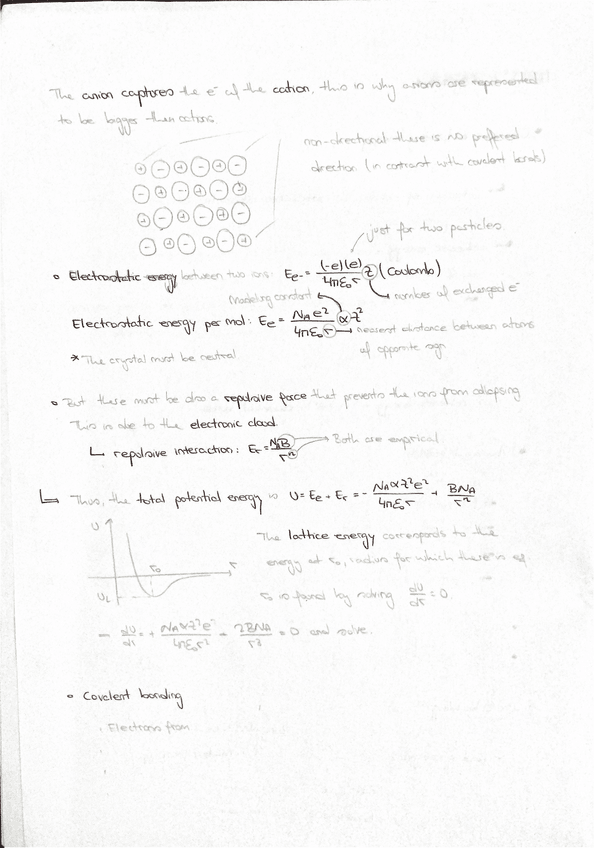 The anion captures the e⁻ of the cation, this is why anions are represented
to be bigger than cations.
non-directional there is no preffered
direction (in contrast with covalent bonds)
+ - + - + -
- + - + - +
+ - + - + -
- + - + - +
just for two particles
• Electrostatic energy between two ions: Ee⁻ = (-e)(e) / 4πε₀r z (Coulomb)
Modeling constant
number of exchanged e⁻
Electrostatic energy per mol: Ee = NAe² / 4πε₀r α z²
nearest distance between atoms
of opposite sign
* The crystal must be neutral
• But there must be also a repulsive force that prevents the ions from collapsing
This is due to the electronic cloud.
↳ repulsive interaction: Er = NAB / rⁿ
Both are empirical
↳ Thus, the total potential energy is U = Ee + Er = - NAαz²e² / 4πε₀r + BNA / r²
U
The lattice energy corresponds to the
r₀ r
energy at r₀, radius for which there is eq.
UL
r₀ is found by solving dU/dr = 0.
→ dU/dr = + NAαz²e² / 4πε₀r² - 2BNA / r³ = 0 and solve.
• Covalent bonding
. Electrons from